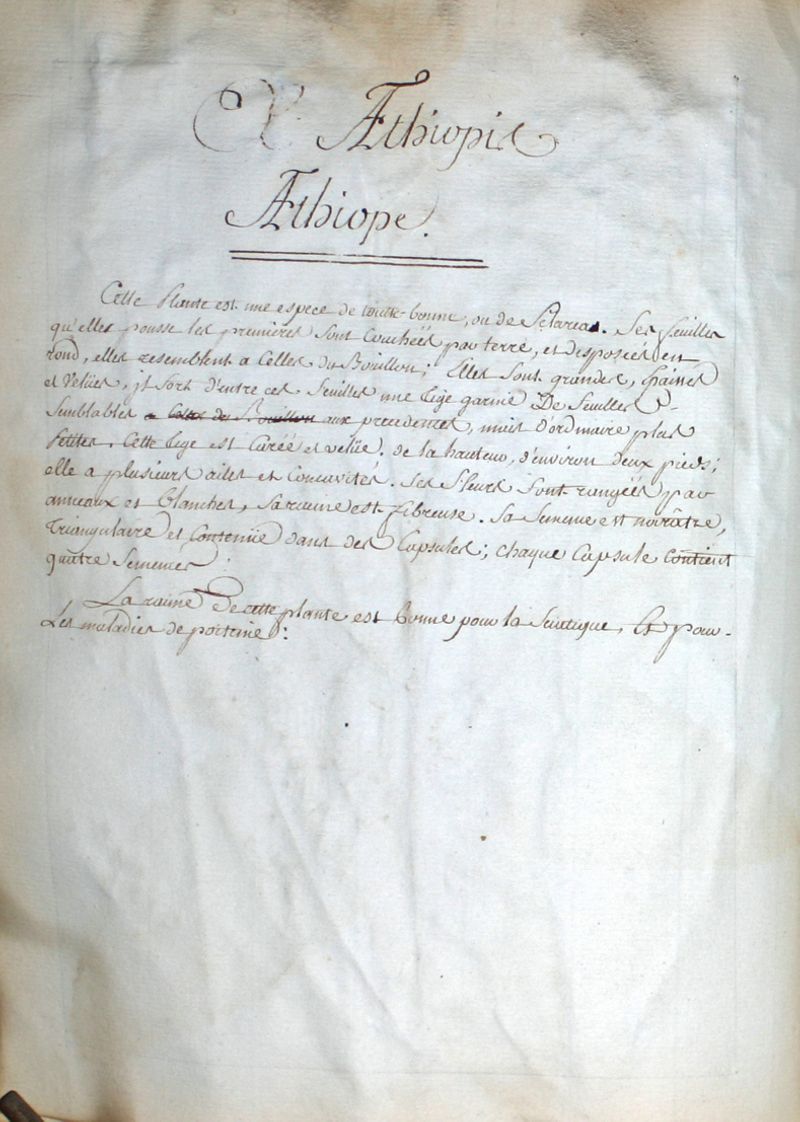 Æthiopis
Æthiope.
Cette Plante est une espece de toutte-bonne, ou de Sclarea. Ses feuilles
qu'elles pousse les premieres sont Couchéés par terre, et desposéés en
rond, elles resemblent a Celles du Bouillon; Elles sont grandes, Epaises
et Velües, jl sort d'entre ces feuilles une tige garnie De feuilles
Semblables a Celles du Bouillon aux precedentes, mais d'ordinaire plus
Petites. Cette tige est Caréé et velüe. de la hauteur, d'environ deux pieds;
elle a plusieurs ailes et Concavités. Ses fleurs sont rangéés par
anneaux et blanches, Sa racine est fibreuse. Sa Semence est noirâtre,
Triangulaire et Contenüe dans des Capsules; chaque Capsule contient
quatre Semences.
La racine De cette plante est bonne pour la Sciatique, Et pour
Les maladies de poitrine: